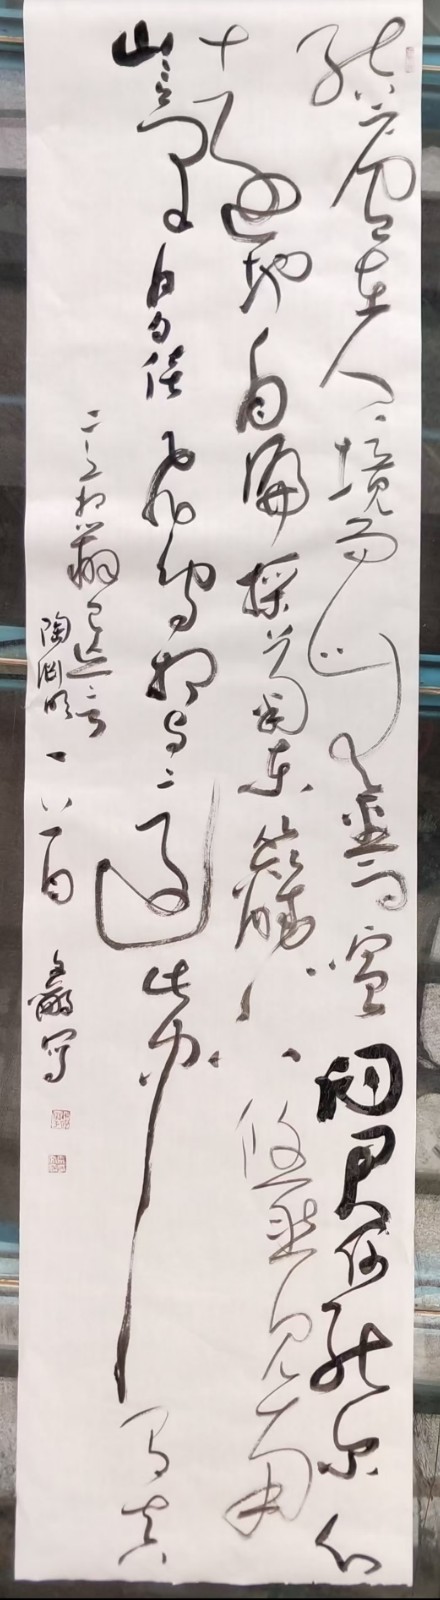 结庐在人境而无车马喧问君何能尔心
远地自偏采菊东篱下悠然见南
山山气日夕佳飞鸟相与还此中有真
意欲辨已忘言
陶渊明一首 写